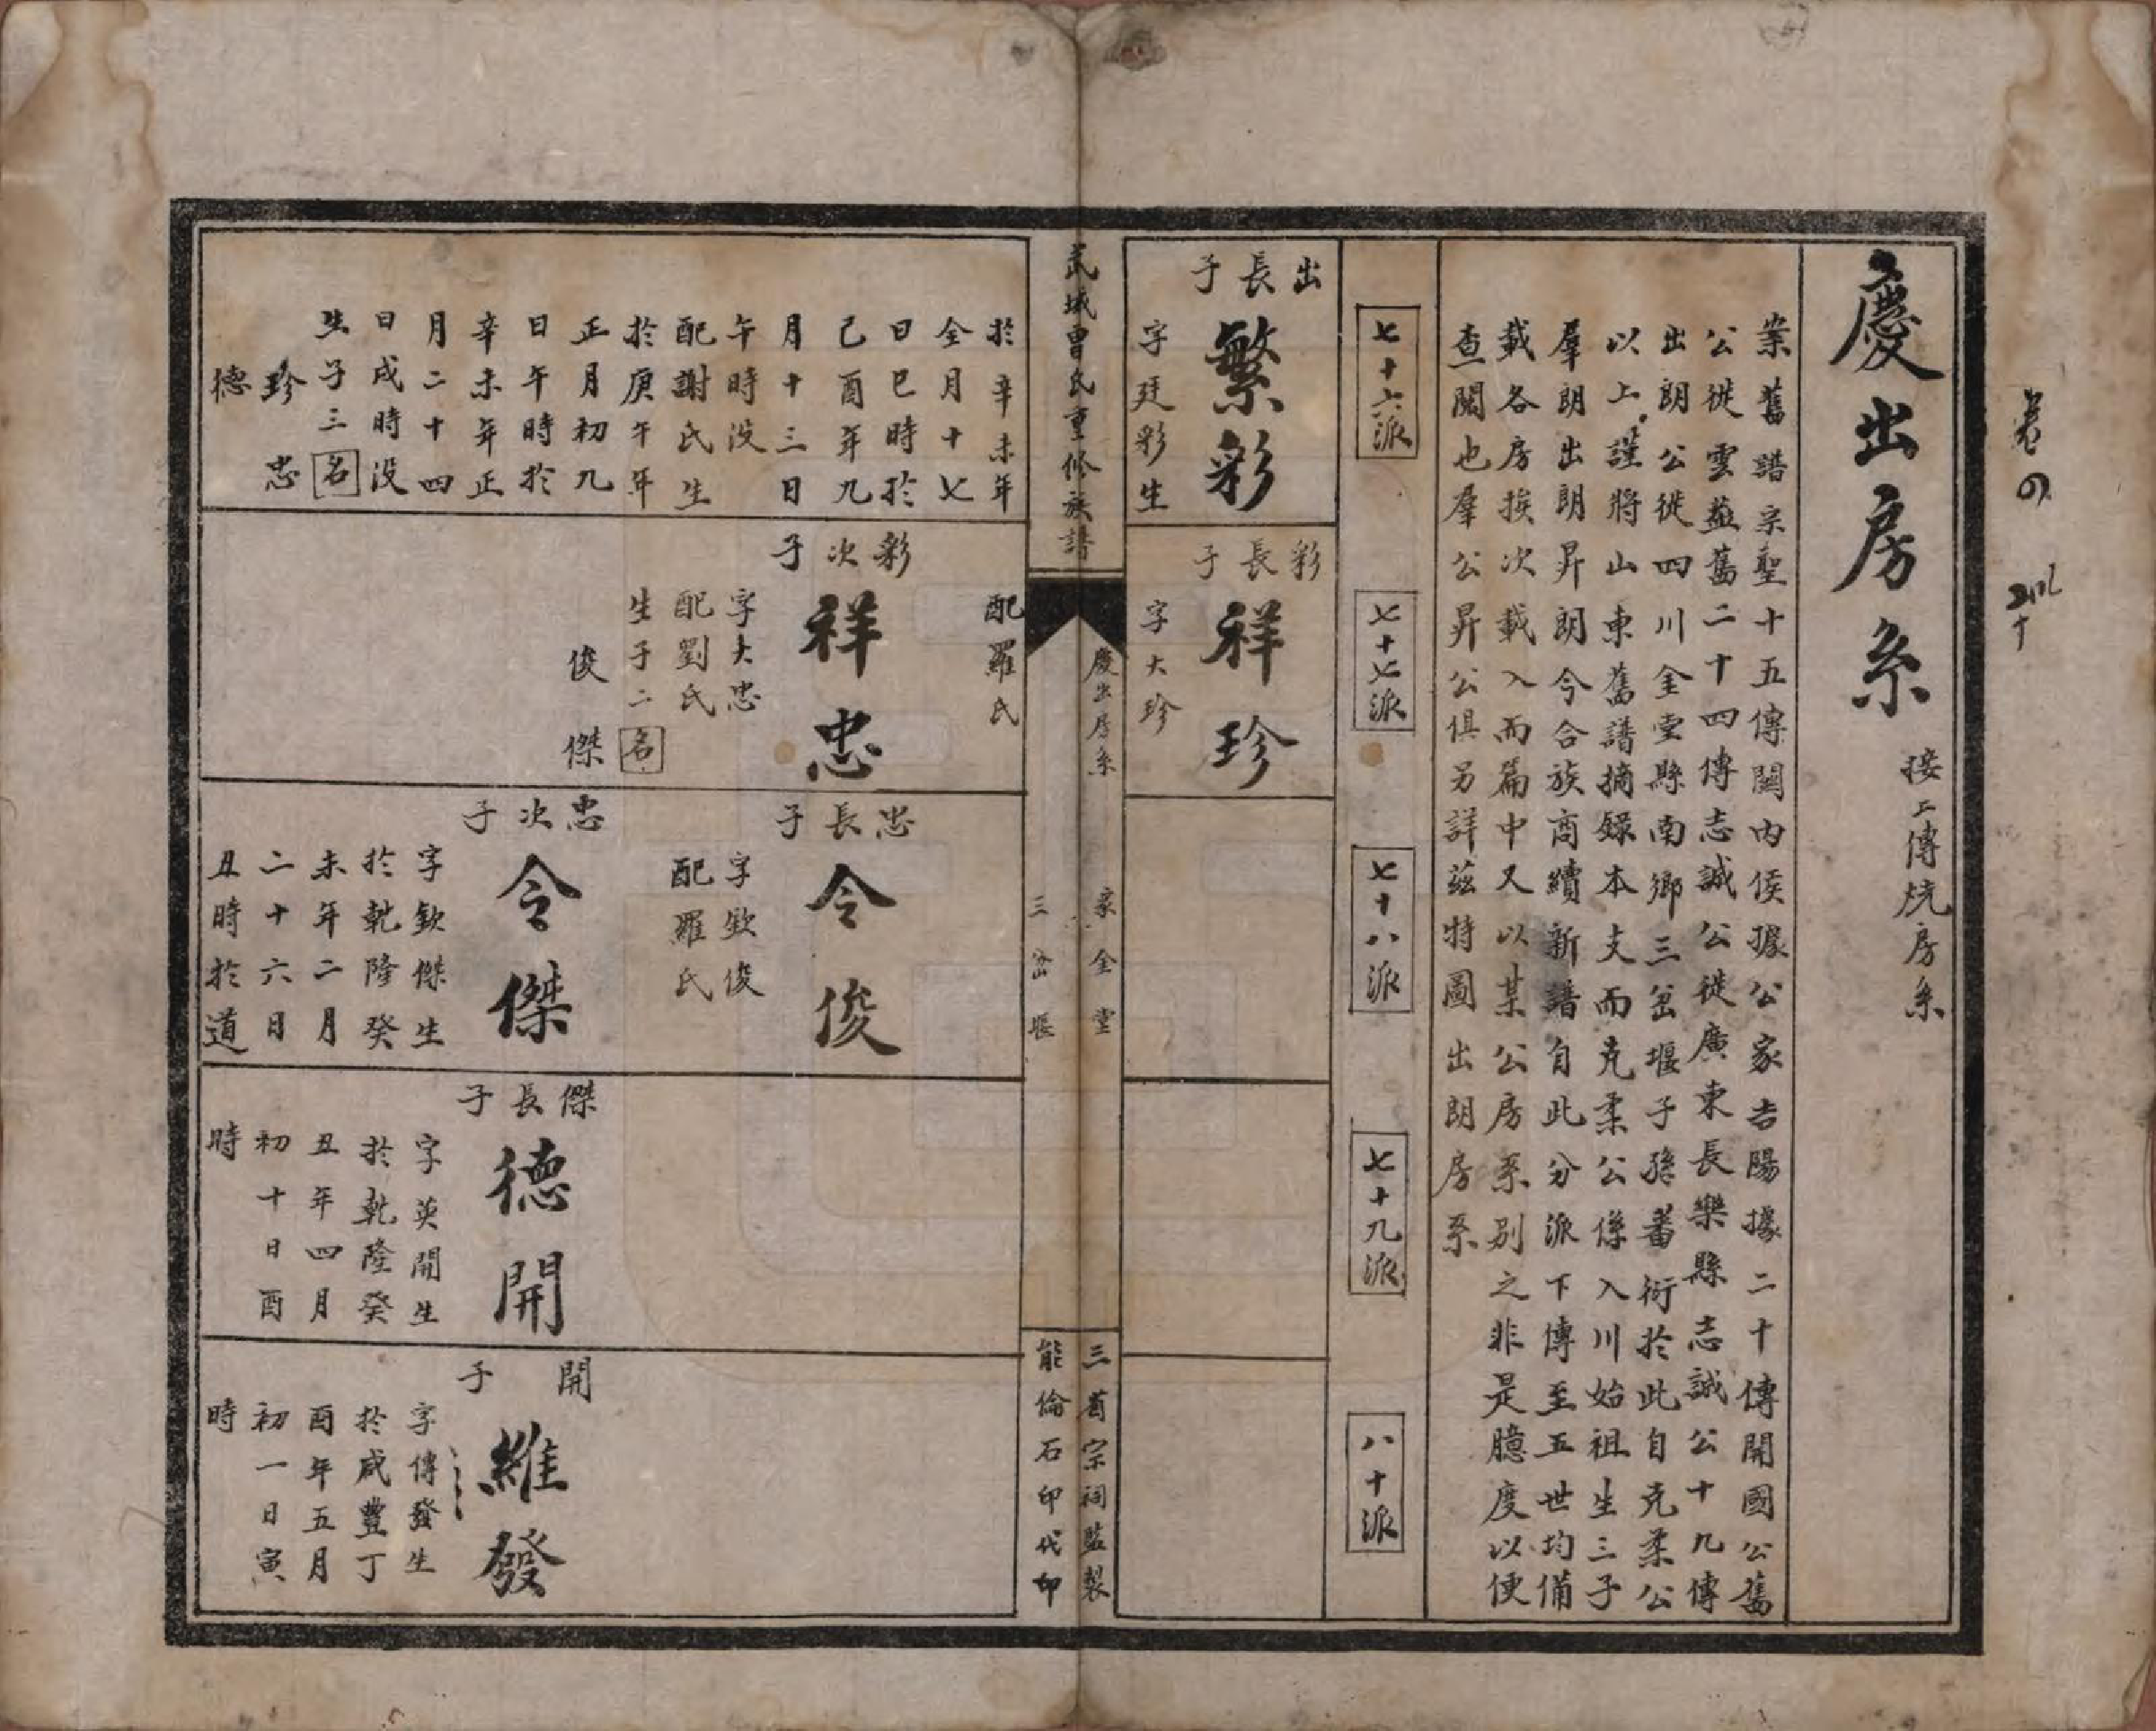 慶出房系
接上傳烷房系
案舊譜宗聖十五傳關內侯據公家吉陽據二十傳開國公舊
公從雲蓋舊二十四傳志誠公從廣東長樂縣志誠公十九傳
出朗公從四川金堂縣南鄉三岔堰子孫蕃衍於此自克柔公
以上謹將山東舊譜摘錄本支而克柔公係入川始祖生三子
羣朗出朗昇朗今合族商續新譜自此分派下傳至五世均備
載各房挨次載入而篇中又以某公房系別之非是臆度以便
查閱也羣公昇公俱另詳茲特圖出朗房系
七十六派
七十七派
七十八派
七十九派
八十派
出長子
繁彩
字廷彩生
彩長子
祥珍
字大珍
武城曾氏重修族譜
慶出房系
家金堂
三岔堰
三省宗祠監製
能倫石印代印
於辛未年
仝月十七
日巳時於
己酉年九
月十三日
午時沒
配謝氏生
於庚午年
正月初九
日午時於
辛未年正
月二十四
日戌時沒
生子三名
珍忠
德
配羅氏
彩次子
祥忠
字大忠
配劉氏
生子二名
俊傑
忠長子
令俊
字欽俊
配羅氏
忠次子
令傑
字欽傑生
於乾隆癸
未年二月
二十六日
丑時於道
傑長子
德開
字英開生
於乾隆癸
丑年四月
初十日酉
時
開子
維發
字傳發生
於咸豐丁
酉年五月
初一日寅
時